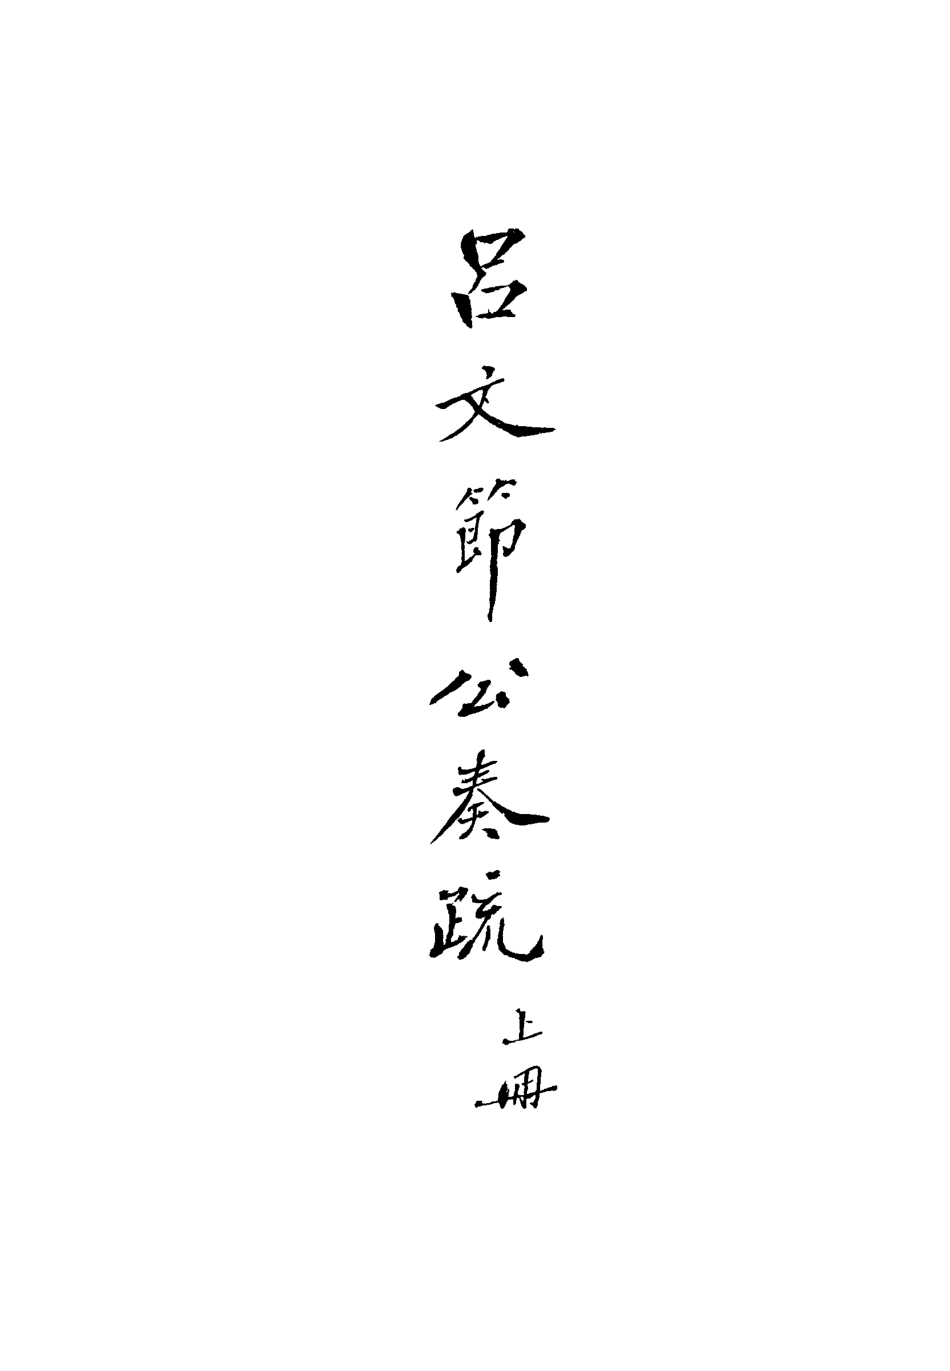 呂文節公奏疏
上冊